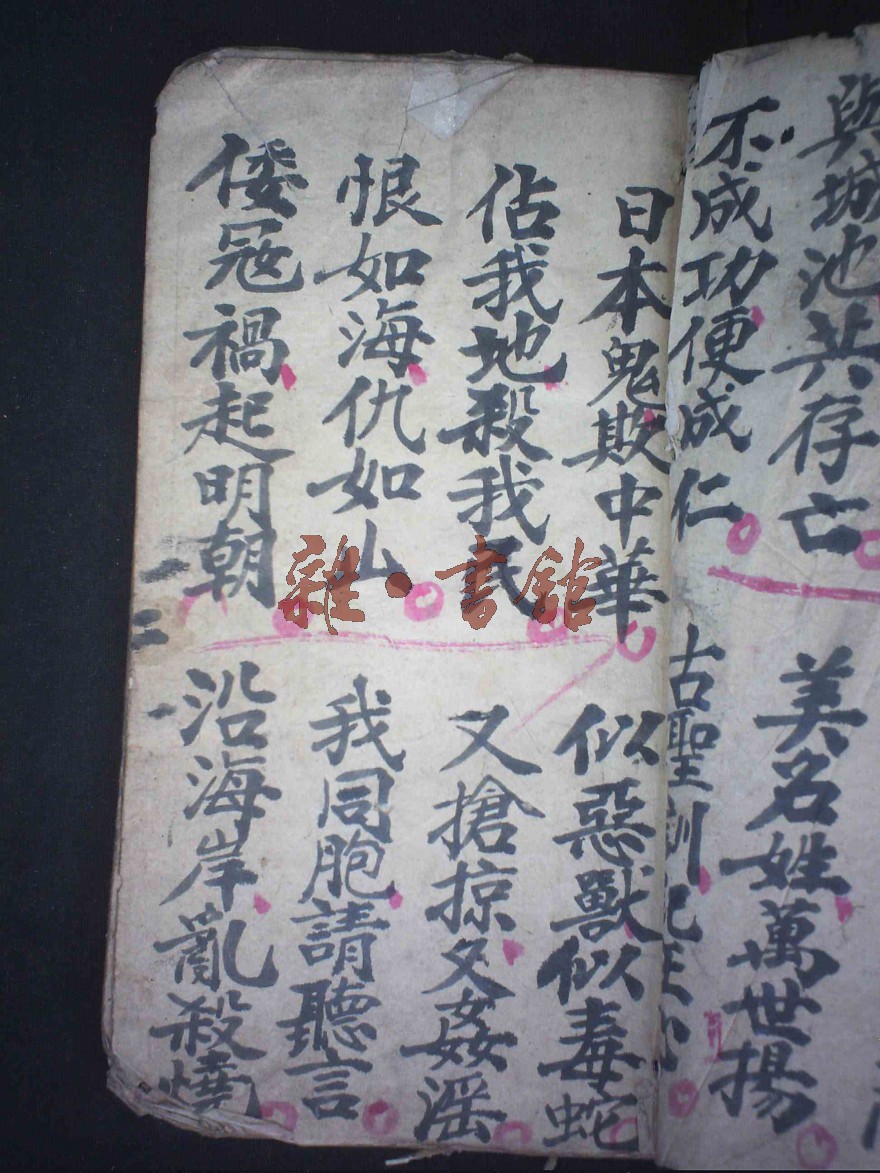 與城池共存亡 美名姓萬世揚
不成功便成仁 古聖訓記在心
日本鬼欺中華 似惡獸似毒蛇
佔我地殺我民 又搶掠又姦滛
恨如海仇如山 我同胞請聽言
倭冦禍起明朝 沿海岸亂殺燒
雜·書館